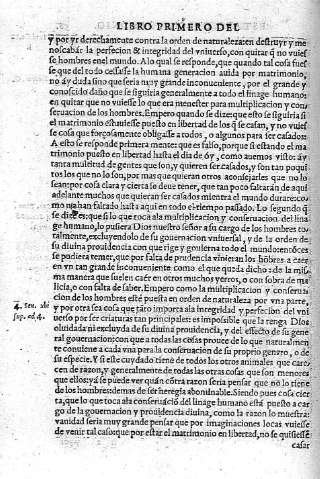 LIBRO PRIMERO DEL
y por yr derechamente contra la orden de naturaleza: en destruyr y me
noscabar la perfecion & integridad del vniuerso, con quitar q̃ no vuies
se hombres en el mundo. A lo qual se responde, que quando tal cosa fues
se que del todo cessasse la humana generacion auida por matrimonio,
no ay duda sino que seria vn grande inconueniente, por el grande y
conoscido daño que se siguiria generalmente a todo el linage humano:
en quitar que no vuiesse lo que era menester para multiplicacion y con
seruacion de los hombres. Empero quando se dize que esto se siguiria si
el matrimonio estuuiesse puesto en libertad de los q̃ se casan, y no vuies
se cosa que forçosamente obligasse a todos, o algunos para ser casados:
A esto se responde primeramente: que es falso, porque si estando el ma
trimonio puesto en libertad hasta el dia de oy, como auemos visto: ay
tanta multitud de gentes que son, y quieren ser casados, y son tan poqui
tos los que no lo son, por mas que quieran otros aconsejarles que no lo
sean: por cosa clara y cierta se deue tener, que tan poco faltarán de aqui
adelante muchos que quieran ser casados mientra el mundo durare: co
mo no han faltado hasta aqui en todo el tiempo passado. Lo segundo q̃
se dize es: que si lo que toca ala multiplicacion y conseruacion del lina
ge humano, lo pusiera Dios nuestro señor a su cargo de los hombres to
talmente, excluyendolo de su gouernacion vniuersal, y de la orden de
su diuina prouidencia con que rige y gouierna todo el mundo: entonces
se podiera temer, que por falta de prudencia vinieran los hõbres a caer
en vn tan grande inconueniente como el que queda dicho: de la mis-
ma manera que suelen caer en otros muchos yerros, o con sobra de ma
licia, o con falta de saber. Empero como la multiplicacion y conserua
cion de los hombres esté puesta en orden de naturaleza por vna parte,
4. tex. ubi y por otra sea cosa que tanto importa ala integridad y perfecion del vni
sup. ed. 4. uerso por ser criaturas tan principales: es impossible que la tenga Dios
oluidada ni excluyda de su diuina prouidencia, y del effecto de su gene
ral gouernacion: con que a todas las cosas prouee de lo que naturalmen
te conuiene a cada vna para la conseruacion de su proprio genero, o de
su especie. Y si este cuydado tiene de todos los otros animales que care
cen de razon, y generalmente de todas las otras cosas que son menores
que ellos: ya se puede ver quán cõtra razon seria pensar que no lo tiene
de los hombres: demas de ser heregia abominable. Siendo pues cosa cier
ta, que lo que toca ala conseruaciõ del linage humano está puesto a car
go de la gouernacion y prouidencia diuina, como la razon lo muestra:
vanidad seria muy grande pensar que por imaginaciones locas vuiesse
de venir tal caso: que por estar el matrimonio en libertad, no se quisiesse
casar